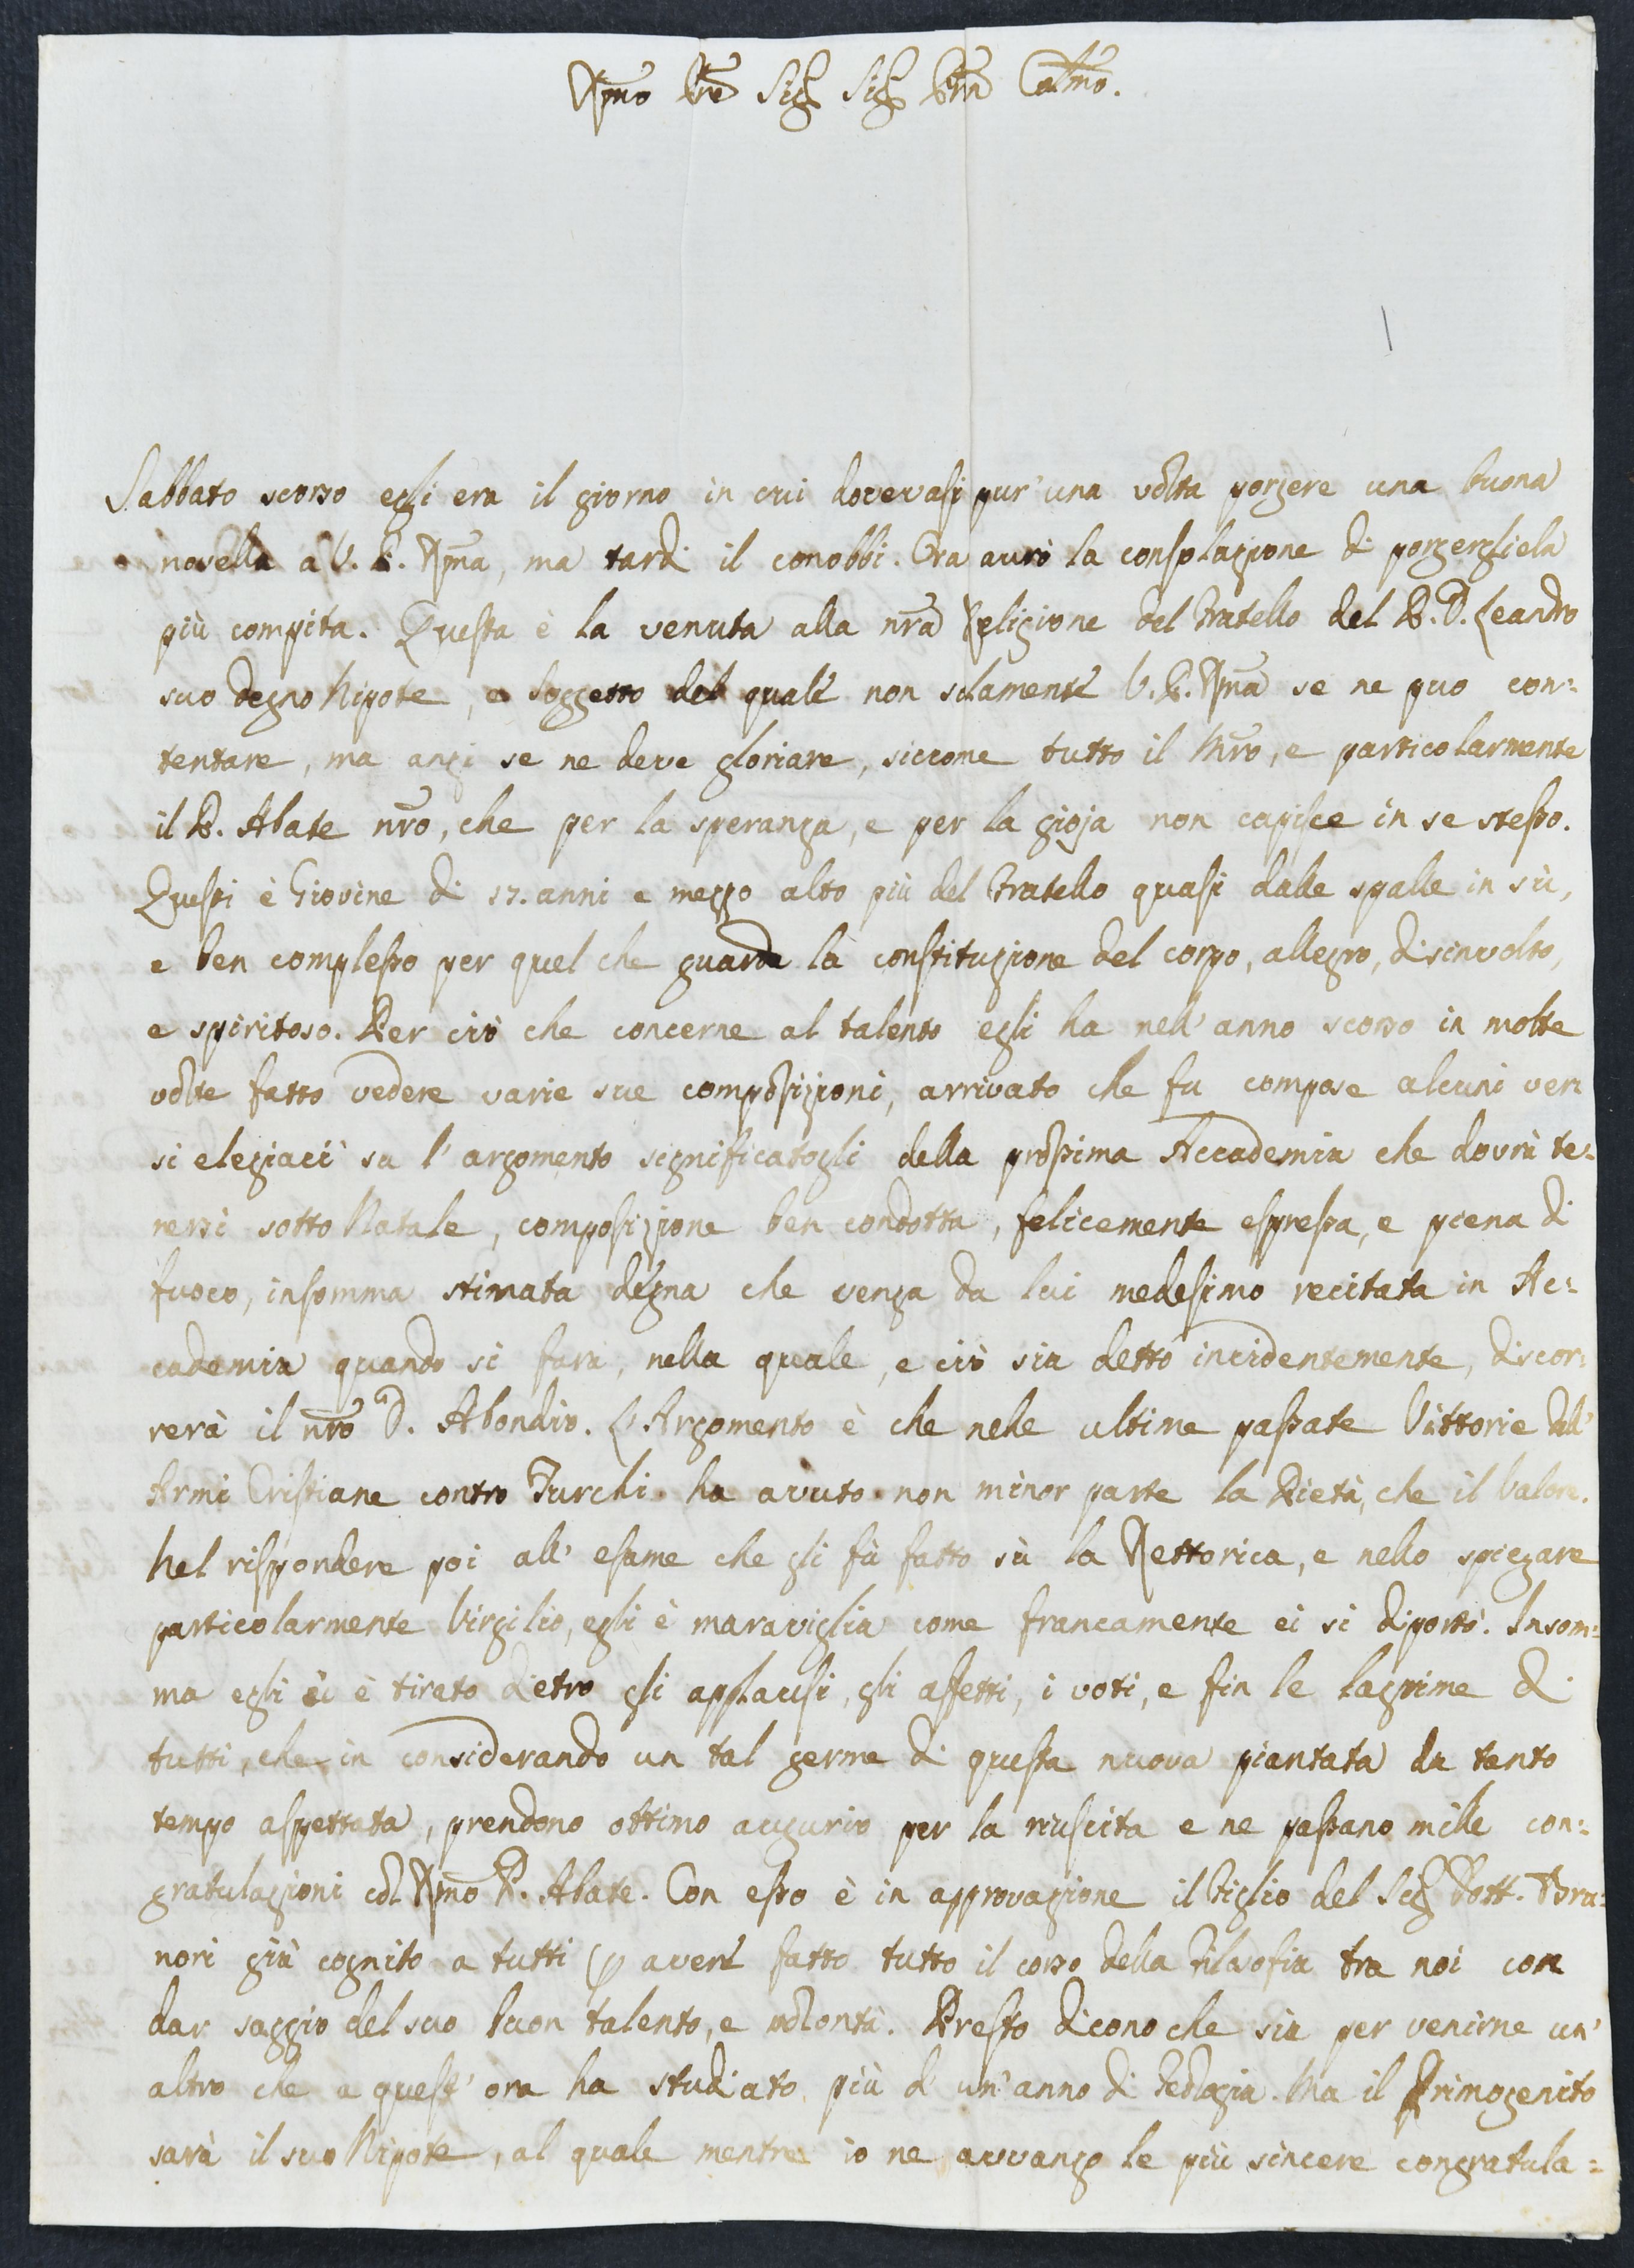 Rmo Pre Sig Sig Prn Colmo.
Sabbato scorso egli era il giorno in cui dovevasi pur' una volta porgere una buona
novella a V. P. Rma, ma tardi il conobbi. Ora avrò la consolazione di porgergliela
più compita. Questa è la venuta alla nra Religione del Fratello del P. D. Leandro
suo degno Nipote, e Soggetto del quale non solamente V. P. Rma se ne può con=
tentare, ma anzi se ne deve gloriare, siccome tutto il Mro, e particolarmente
il P. Abate nro, che per la speranza, e per la gioja non capisce in se stesso.
Questi è Giovine di 17. anni e mezzo alto più del Fratello quasi dalle spalle in sù,
e ben complesso per quel che guarda la constituzione del corpo, allegro, disinvolto,
e spiritoso. Per ciò che concerne al talento egli ha nell' anno scorso in molte
volte fatto vedere varie sue composizioni, arrivato che fu compose alcuni ver
si elegiaci su l' argomento significatogli della prossima Accademia che dovrà te=
nersi sotto Natale, composizione ben condotta, felicemente espressa, e piena di
fuoco, insomma stimata degna che venga da lui medesimo recitata in Ac=
cademia quando si farà, nella quale, e ciò sia detto incidentemente, discor=
rerà il nro D. Abondio. L' Argomento è che nelle ultime passate Vittorie dell'
Armi Cristiane contro Turchi ha avuto non minor parte la Pietà, che il Valore.
Nel rispondere poi all' esame che gli fù fatto sù la Rettorica, e nello spiegare
particolarmente Virgilio, egli è maraviglia come francamente ei si diportò. Insom=
ma egli si è tirato dietro gli applausi, gli affetti, i voti, e fin le lagrime di
tutti, che in considerando un tal germe di questa nuova piantata da tanto
tempo aspettata, prendono ottimo augurio per la riuscita e ne passano mille con=
gratulazioni col Rmo P. Abate. Con esso è in approvazione il Figlio del Sig Dott. Bru=
nori già cognito a tutti p avere fatto tutto il corso della Filosofia tra noi con
dar saggio del suo buon talento, e volontà. Presto dicono che sia per venirne un'
altro che a quest' ora ha studiato più d' un' anno di Teologia. Ma il Primogenito
sarà il suo Nipote, al quale mentre io ne avvanzo le più sincere congratula=